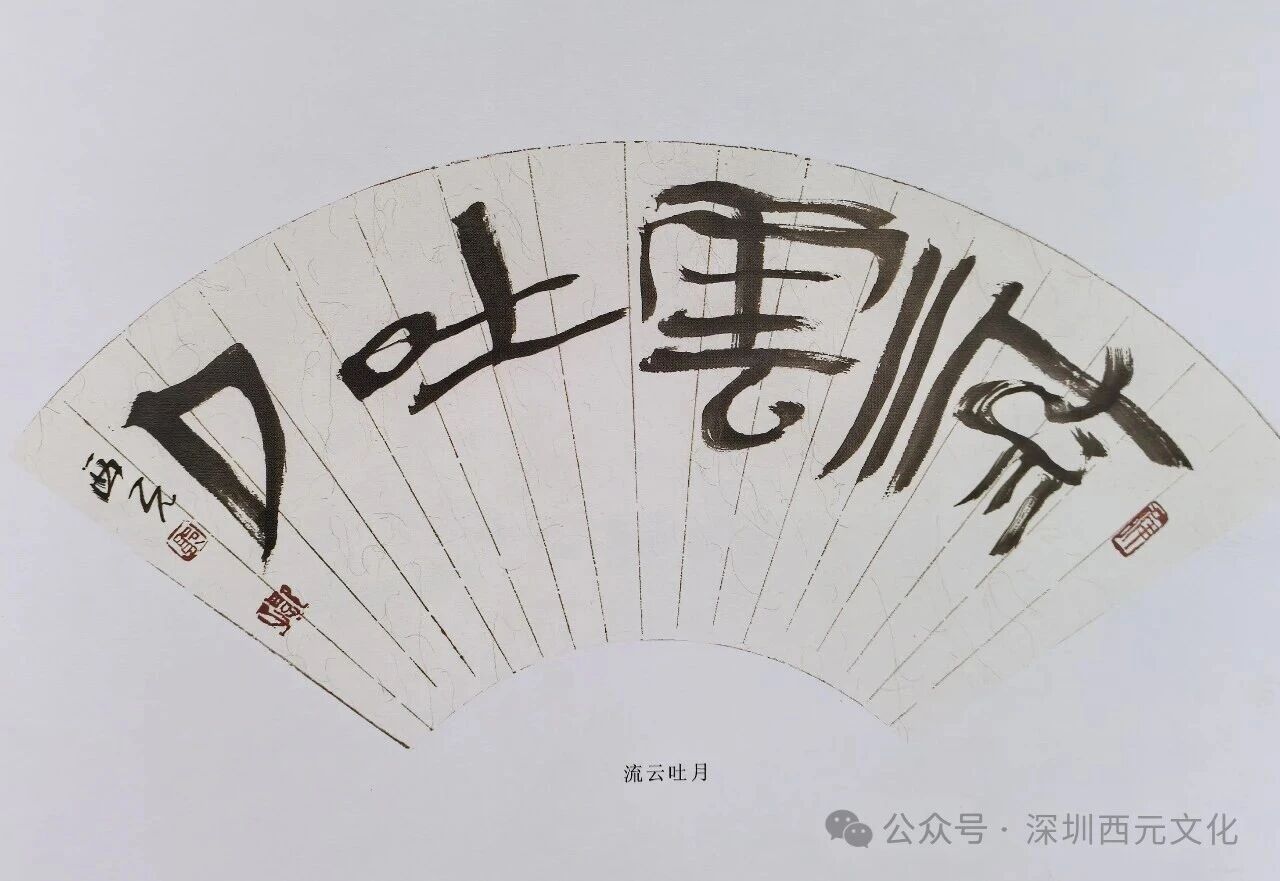 流雲吐月
西元
流云吐月
公众号·深圳西元文化